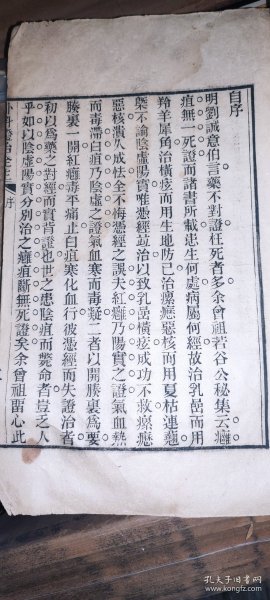 自序
明劉誠意伯言藥不對證枉死者多余曾祖若谷公秘集云癰
疽無一死證而諸書所載患生何處病屬何經故治乳嵒而用
羚羊犀角治橫痃而用生地防已治瘰癧惡核而用夏枯連翹
槩不論陰虛陽實惟憑經並治以致乳嵒橫痃成功不救瘰癧
惡核潰久成怯全不悔憑經之誤夫紅癰乃陽實之證氣血熱
而毒滯白疽乃陰虛之證氣血寒而毒凝二者以開腠裏為要
腠裏一開紅癰毒平痛止白疽寒化血行彼憑經而失證治者
初以為藥之對經而實背證也世之患陰疽而斃命者豈乏人
乎如以陰虛陽實分別治之癰疽斷無死證矣余曾祖畱心此
外科證治全生
序
孔夫子旧书网